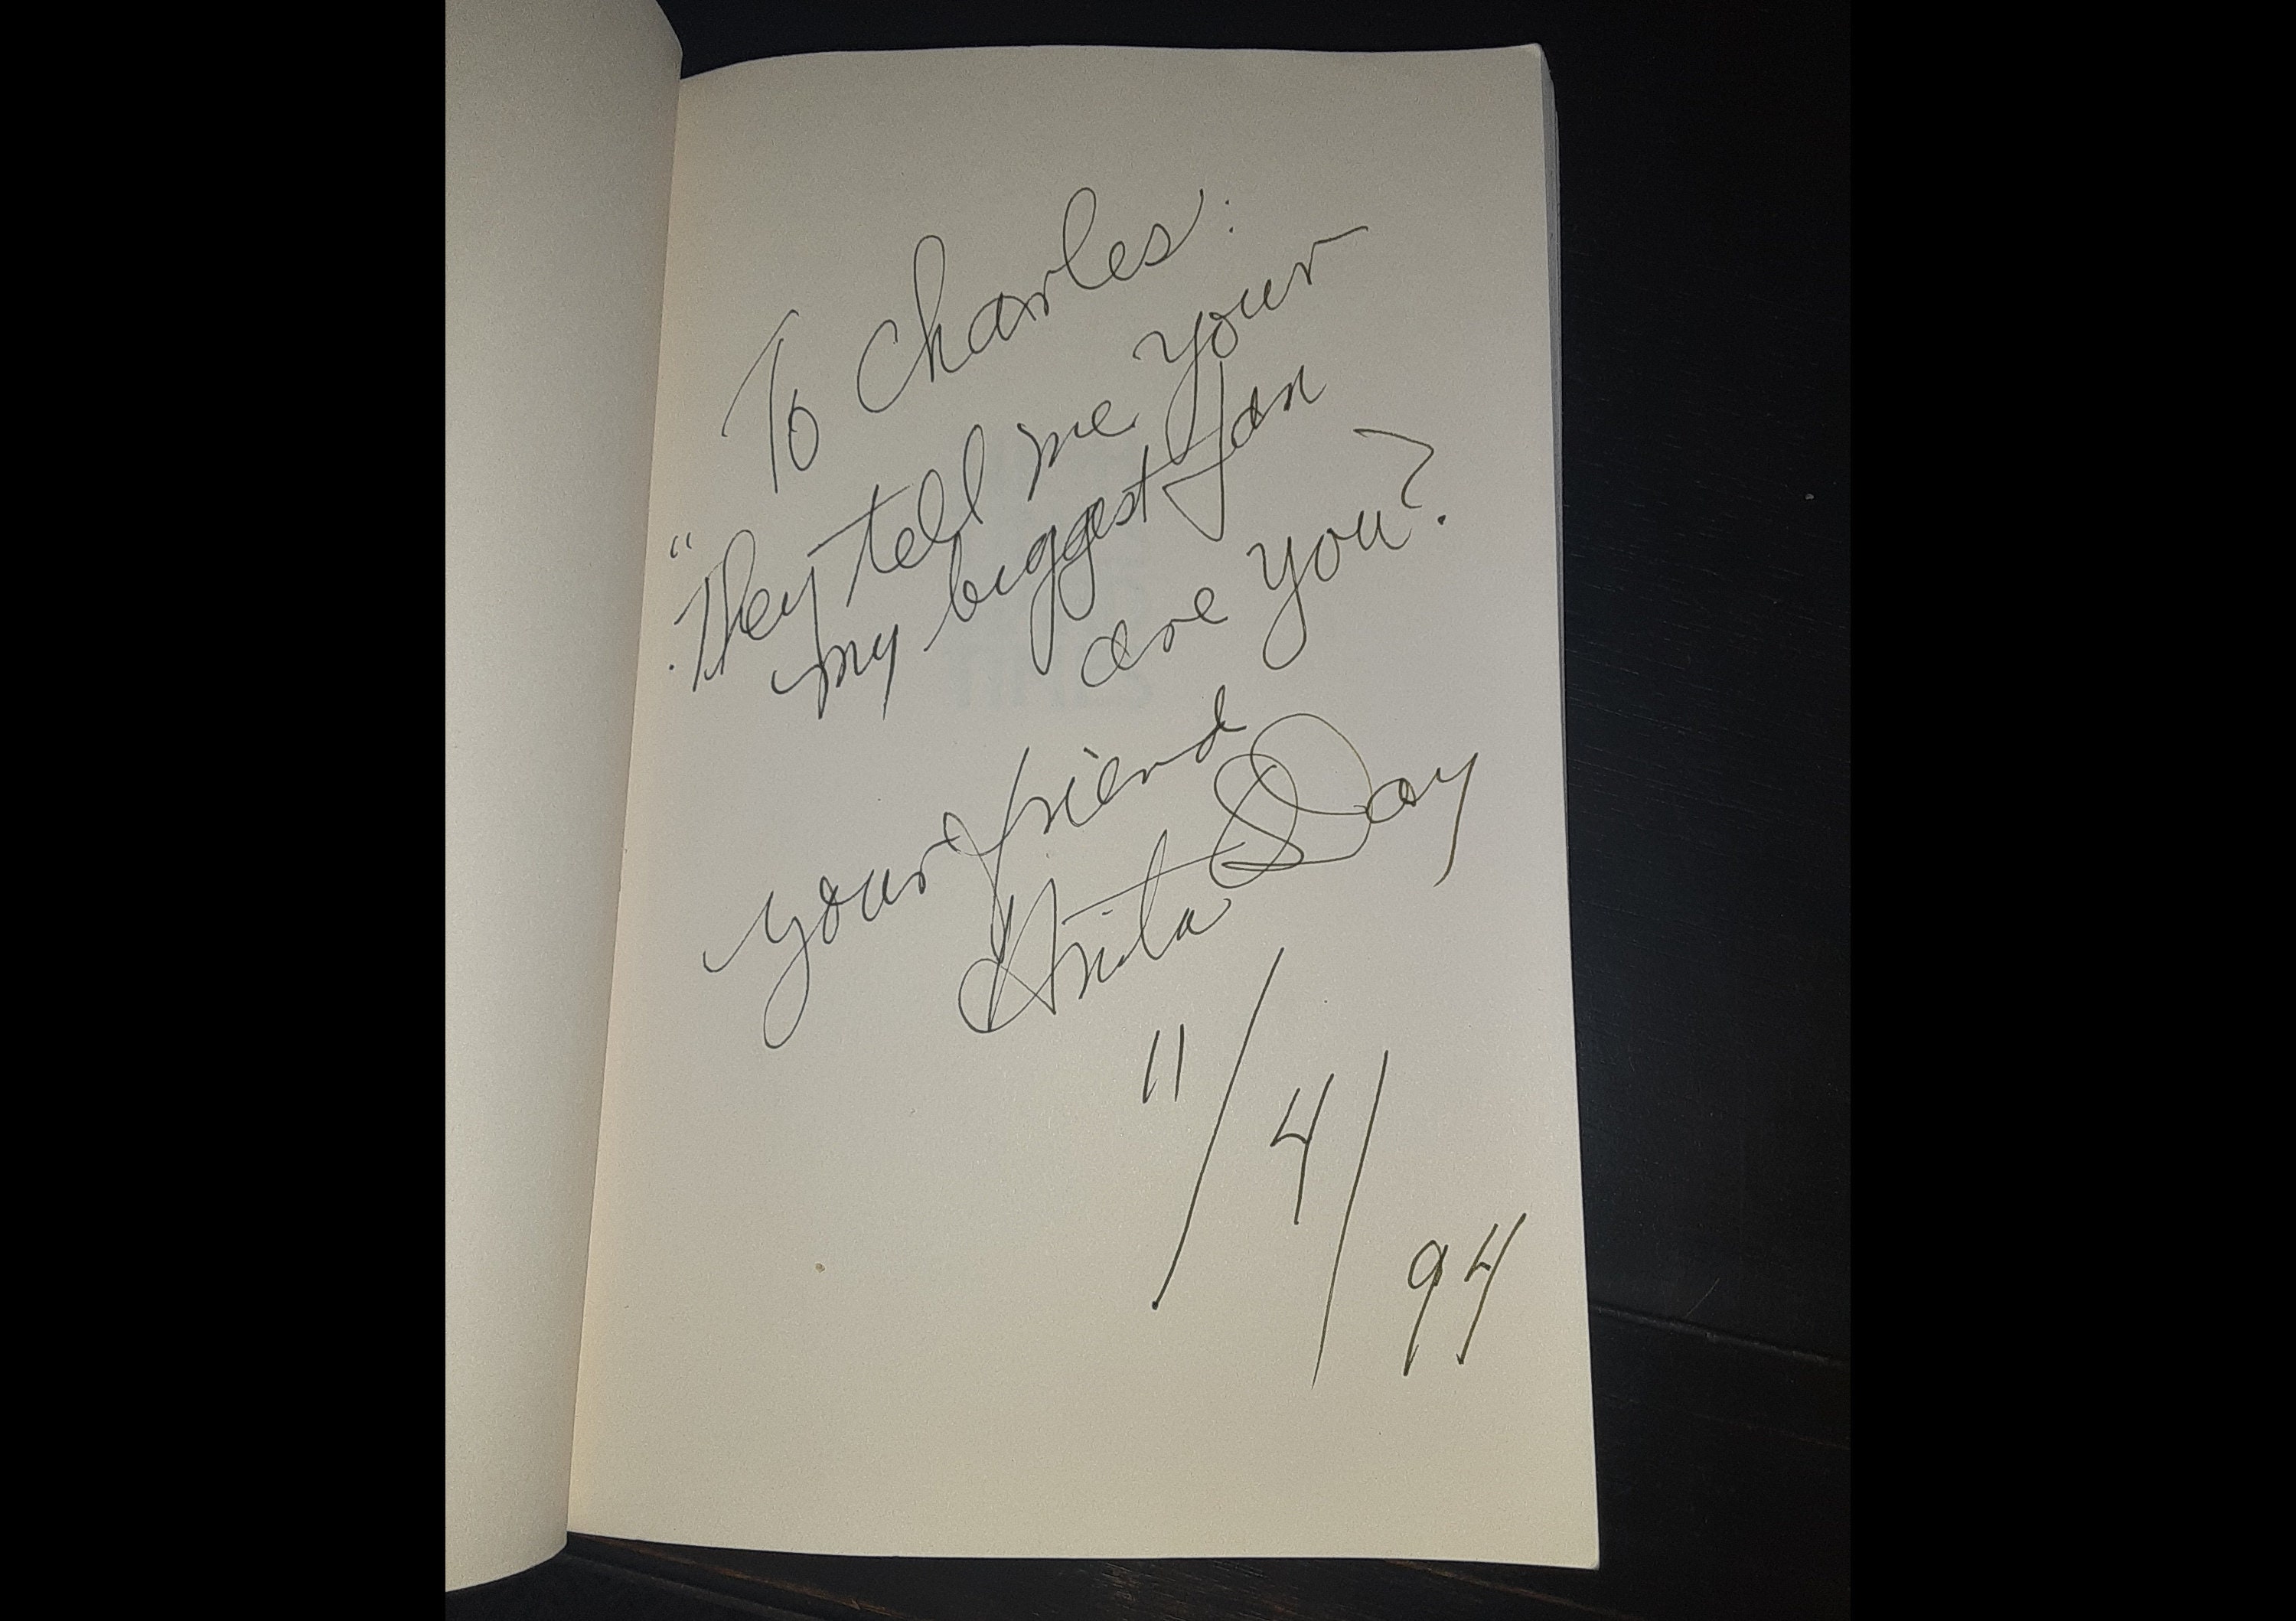 To Charles:
"They tell me your
my biggest fan
are you?
your friend
Anita O Day
11/4/94